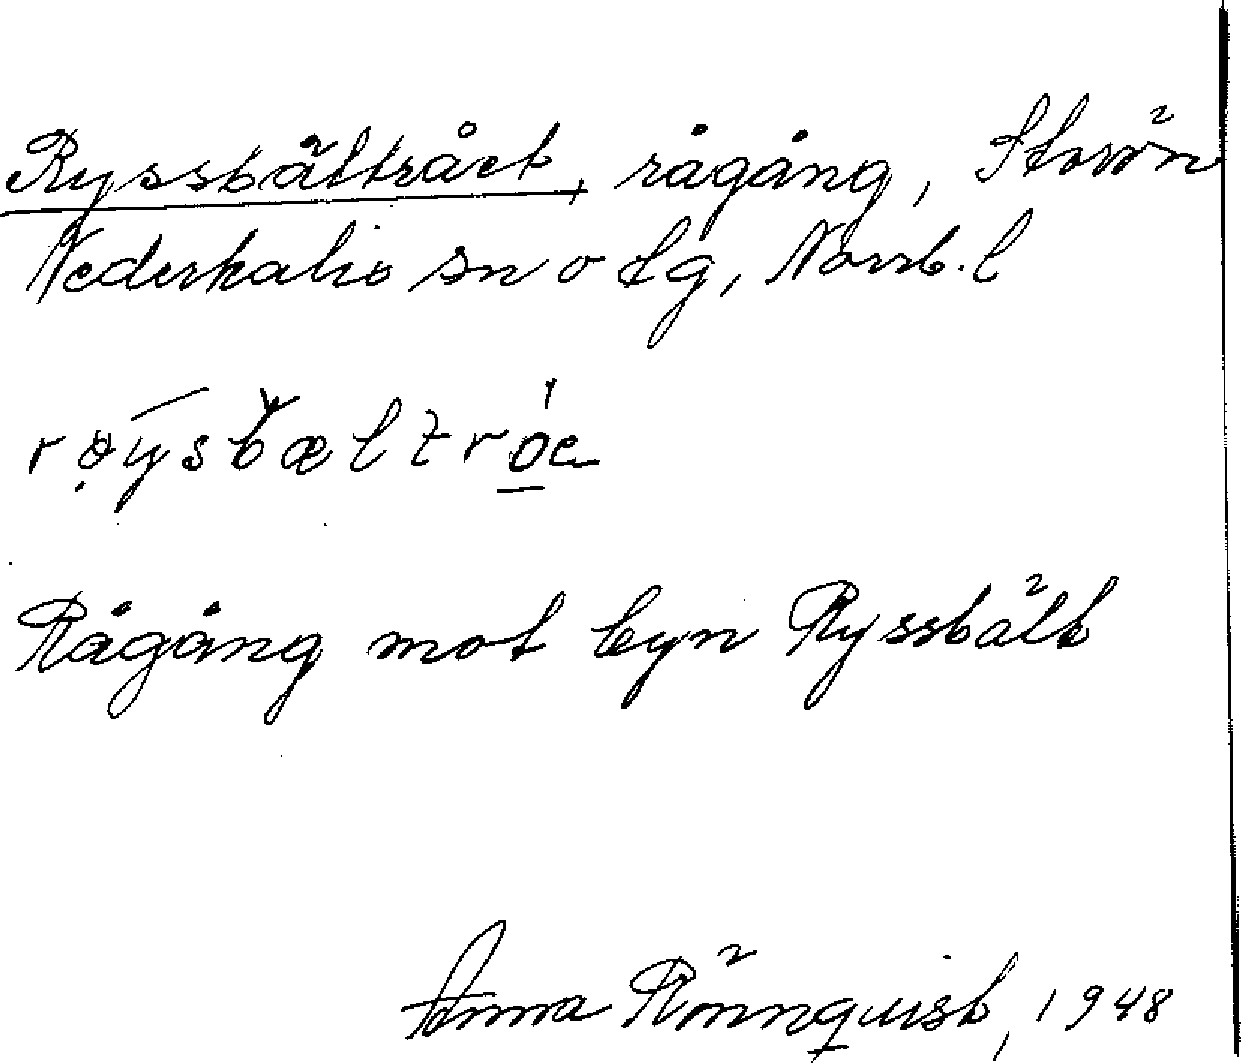 Ryssbältrået, rågång, Storön
Nederkalix sn o tg, Norrb. l
røysbæltróe
Rågång mot byn Ryssbält
Anna Rönnquist, 1948